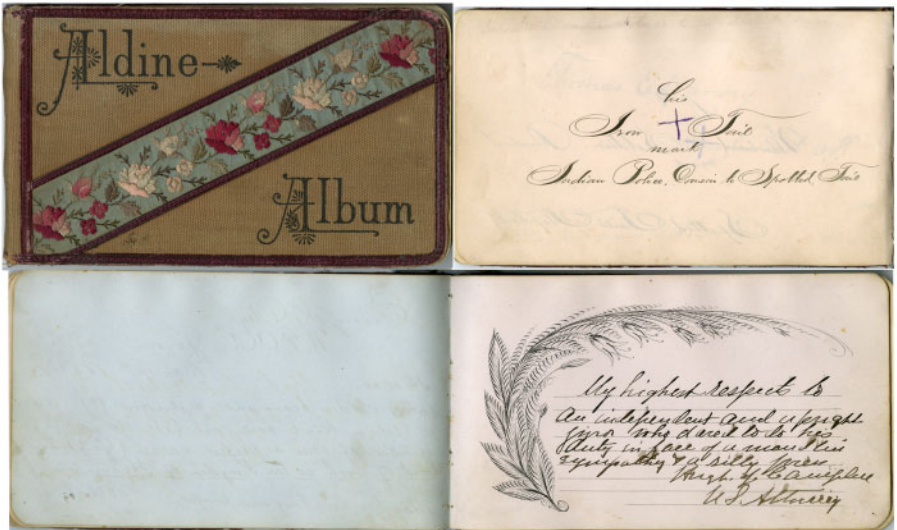 Aldine
Album
his
Iron + Tail
mark
Indian Police, Cousin to Spotted Tail
My highest respects to
an independent and upright
juror who dared to do his
duty in face of a maudlin
sympathy & a silly press
Hugh J. Campbell
U.S. Attorney